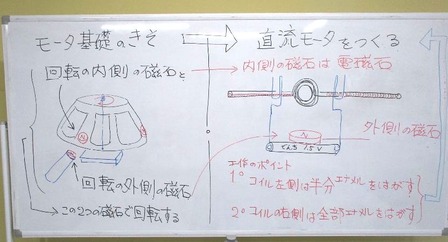 モータ基礎のきそ
回転の内側の磁石と
回転の外側の磁石
この2つの磁石で回転する
直流モータをつくる
内側の磁石は電磁石
外側の磁石
N
でんち 1.5V
工作のポイント
1° コイル左側は半分エナメルをはがす
2° コイルの右側は全部エナメルをはがす